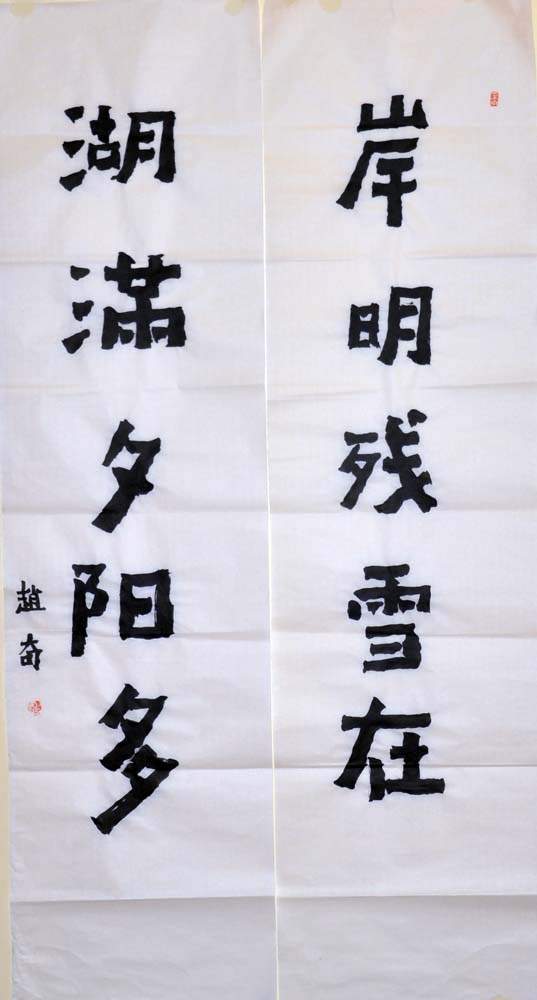 岸明残雪在
湖满夕阳多
趙奇